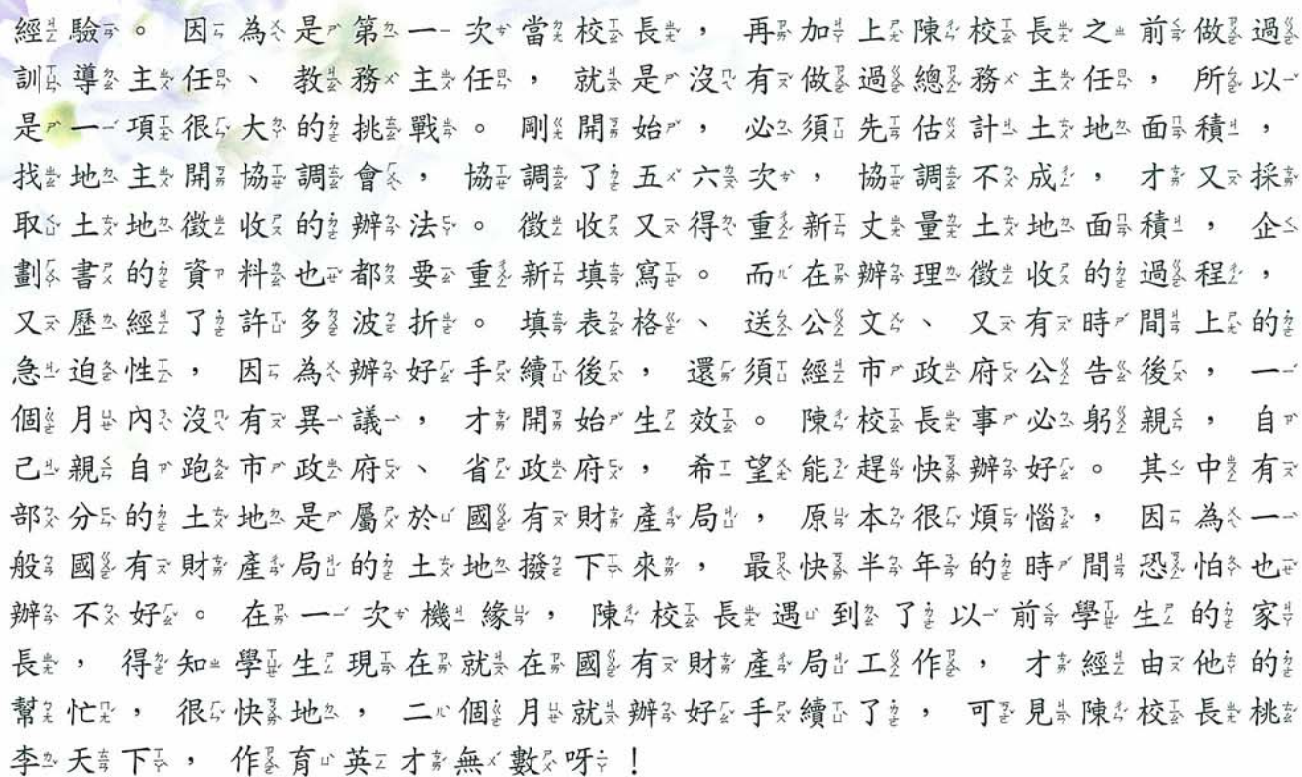 經驗。因為是第一次當校長，再加上陳校長之前做過
訓導主任、教務主任，就是沒有做過總務主任，所以
是一項很大的挑戰。剛開始，必須先估計土地面積，
找地主開協調會，協調了五六次，協調不成，才又採
取土地徵收的辦法。徵收又得重新丈量土地面積，企
劃書的資料也都要重新填寫。而在辦理徵收的過程，
又歷經了許多波折。填表格、送公文、又有時間上的
急迫性，因為辦好手續後，還須經市政府公告後，一
個月內沒有異議，才開始生效。陳校長事必躬親，自
己親自跑市政府、省政府，希望能趕快辦好。其中有
部分的土地是屬於國有財產局，原本很煩惱，因為一
般國有財產局的土地撥下來，最快半年的時間恐怕也
辦不好。在一次機緣，陳校長遇到了以前學生的家
長，得知學生現在就在國有財產局工作，才經由他的
幫忙，很快地，二個月就辦好手續了，可見陳校長桃
李天下，作育英才無數呀！